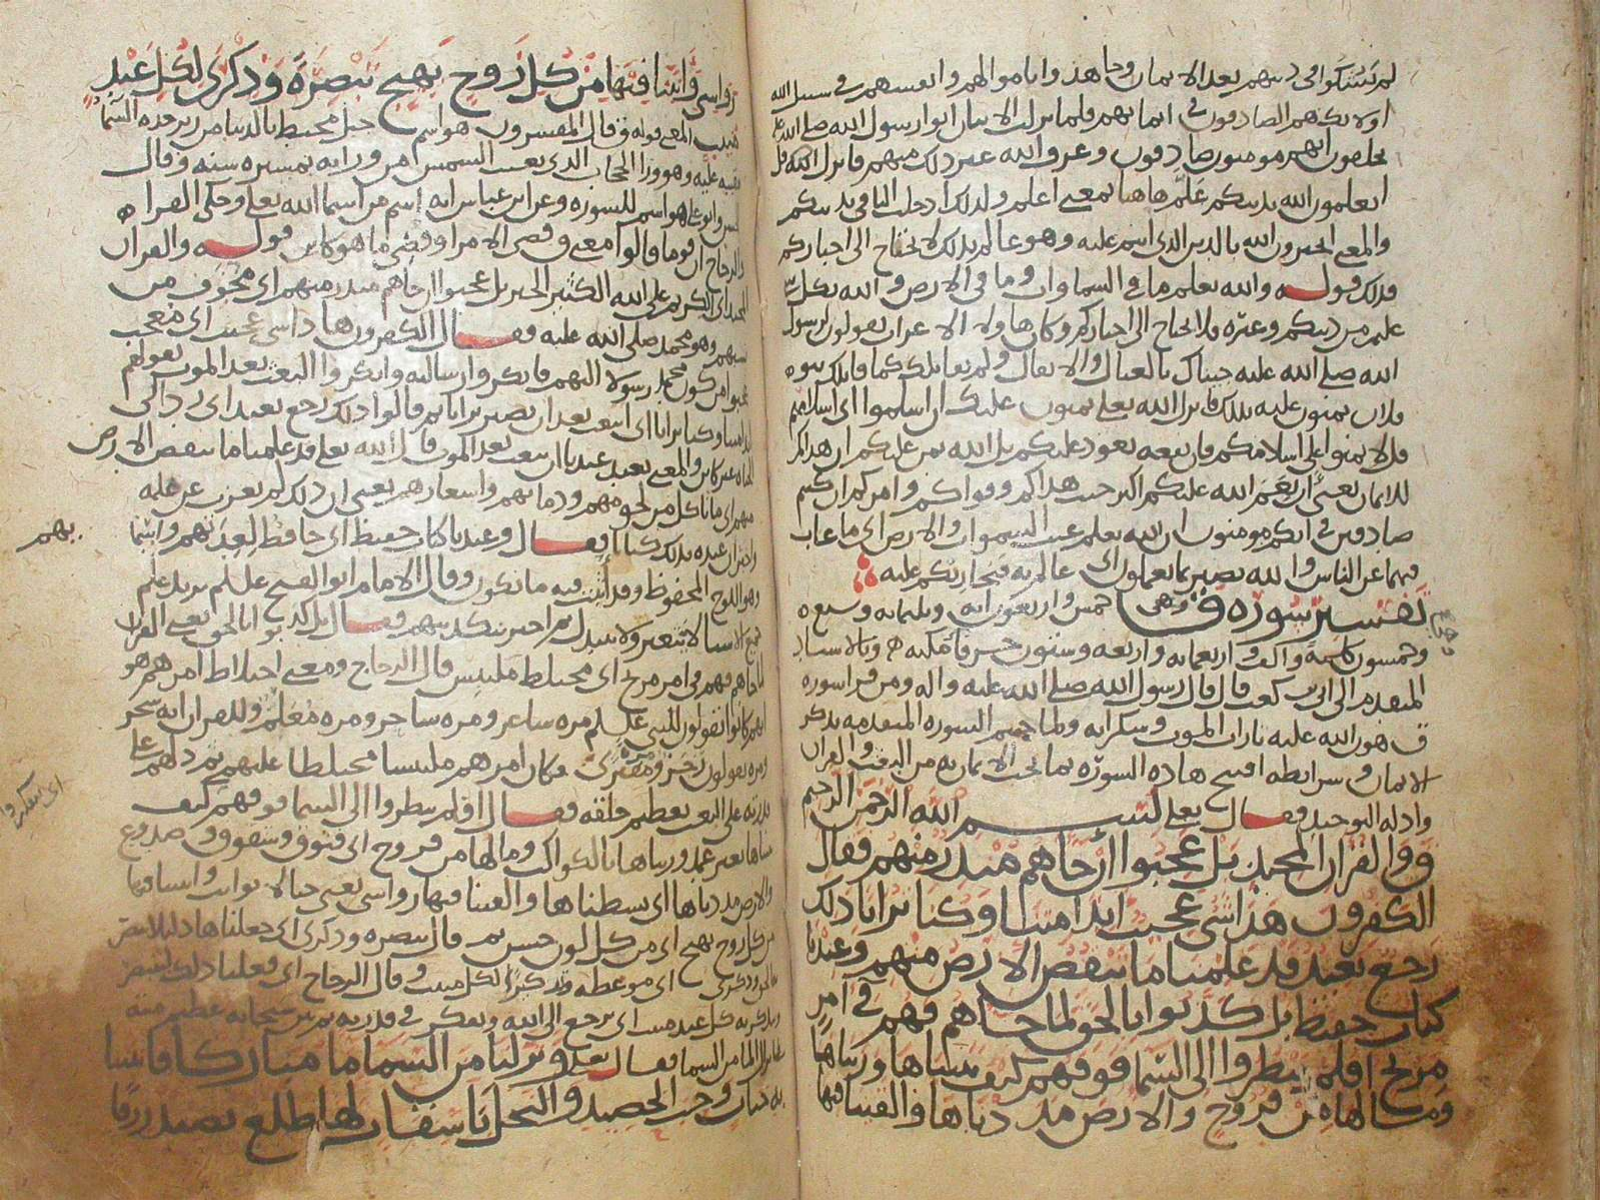 لم يشكوا في دينهم بعد الايمان وجاهدوا باموالهم وانفسهم في سبيل الله
اولئك هم الصادقون في ايمانهم فلما نزلت الايتان اتوا رسول الله صلى الله عليه
يحلفون انهم مومنون صادقون وعرف الله غير ذلك منهم فانزل الله قل
اتعلمون الله بدينكم علم هاهنا بمعنى اعلم ولذلك ادخلت البا في بدينكم
والمعنى اتخبرون الله بالدين الذي انتم عليه وهو عالم بذلك لا يحتاج الى اخباركم
فذلك قوله والله يعلم ما في السماوات وما في الارض والله بكل شي
عليم من دينكم وغيره فلا يحتاج الى اخباركم وكان هاولا الاعراب يقولون لرسول
الله صلى الله عليه جيناك بالعيال والاثقال ولم نقاتلك كما قاتلك بنوه
فلان يمنون عليه بذلك فانزل الله تعالى يمنون عليك ان اسلموا اي اسلامهم
قل لا تمنوا علي اسلامكم فان نفعه يعود عليكم بل الله يمن عليكم ان هداكم
للايمان يعني ان نعم الله عليكم اكثر حيث هداكم وقواكم وامركم ان كنتم
صادقين في انكم مومنون ان الله يعلم غيب السموات والارض اي ما غاب
فيهما عن الناس والله بصير بما تعملون اي عالم به فيجازيكم عليه
تفسير سورة ق وهي خمس واربعون اية وثلثماية وسبع
وخمسون كلمة والف واربعماية واربعة وستون حرفا مكية وبالاسناد
المتقدم الى ابي بن كعب قال قال رسول الله صلى الله عليه واله ومن قرا سورة
ق هون الله عليه تارات الموت وسكراته ولما ختم السورة المتقدمة بذكر
الايمان وشرايطه افتتح هاذه السورة بما يجب الايمان به من البعث والقران
وادلة التوحيد فقال تعلى لبسم الله الرحمن الرحيم
ق والقران المجيد بل عجبوا ان جاهم منذر منهم فقال
الكفرون هذا شي عجيب ايذا متنا وكنا ترابا ذلك
رجع بعيد قد علمنا ما تنقص الارض منهم وعندنا
كتاب حفيظ بل كذبوا بالحق لما جاهم فهم في امر
مريج افلم ينظروا الى السما فوقهم كيف بنيناها وزيناها
وما لها من فروج والارض مددناها والقينا فيها
رواسي وانبتنا فيها من كل زوج بهيج تبصرة وذكرى لكل عبد
منيب المعنى قوله ق قال المفسرون هو اسم جبل محيط بالدنيا من زبرجدة السما
عليه وهو ورا الحجاب الذي تغيب الشمس من ورايه بمسيرة سنة وقال
هو اسم للسورة وعن ابن عباس انه اسم من اسما الله تعلى وحكى الفرا
والزجاج ان قوما قالوا معنى ق قضي الامر او قضي ما هو كاين قوله والقران
المجيد اي الكريم على الله الكثير الخير بل عجبوا ان جاهم منذر منهم اي مخوف من
وهو محمد صلى الله عليه فقال الكفرون هاذا شي عجيب اي معجب
عجبوا من كون محمد رسولا اليهم فانكروا رسالته وانكروا البعث بعد الموت بقولهم
ايذا متنا وكنا ترابا اي انبعث بعد ان نصير ترابا ثم قالوا ذلك رجع بعيد اي رد الى
الحياة غير كاين والمعنى بعيد عندنا ان نبعث بعد الموت قال الله تعلى قد علمنا ما تنقص الارض
منهم اي ما تاكل من لحومهم ودمايهم واشعارهم يعني ان ذلك لم يعزب عن علمه
بذلك كتابا فقال وعندنا كتاب حفيظ اي حافظ لعدتهم واسمايهم
وهو اللوح المحفوظ وقد اثبت فيه ما يكون وقال الامام ابو الفتح علم يريد علم
لا يتغير ولا يتبدل ثم اخبر بتكذيبهم فقال بل كذبوا بالحق يعني القران
لما جاهم فهم في امر مريج اي مختلط ملتبس قال الزجاج ومعنى اختلاط امرهم هو
انهم كانوا يقولون للنبي علم مرة شاعر ومرة ساحر ومرة معلم وللقران انه سحر
ومرة يقولون رجز ومرة مفترى فكان امرهم ملتبسا مختلطا عليهم ثم دلهم على
قدرته على البعث بعظيم خلقه فقال افلم ينظروا الى السما فوقهم كيف
بنيناها بغير عمد وزيناها بالكواكب وما لها من فروج اي فتوق وشقوق وصدوع
والارض مددناها اي بسطناها والقينا فيها رواسي يعني جبالا ثوابت وانبتنا فيها
من كل زوج بهيج اي من كل لون حسن ثم قال تبصرة وذكرى اي جعلناها دليلا
وذكرى اي موعظة وتذكيرا لكل منيب وقال الزجاج اي فعلنا ذلك لنبصر
ونذكر به كل عبد منيب اي يرجع الى الله ويفكر في قدرته ثم بين سبحانه عظيم منته
بانزال الما من السما فقال تعلى ونزلنا من السما ما مباركا فانبتنا
به جنات وحب الحصيد والنخل باسقات لها طلع نضيد رزقا